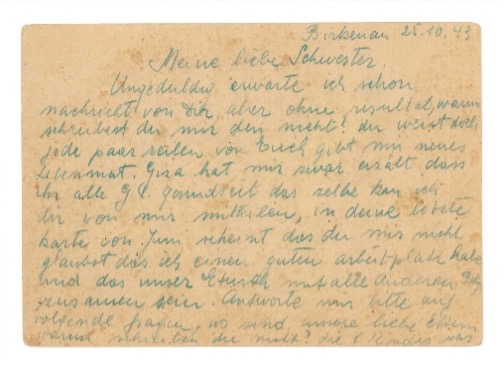 Birkenau 25.10.43
Meine liebe Schwester.
Ungeduldig erwarte ich schon
nachricht von Dir, aber ohne resultat, warum
schreibest du mir den nicht? du weist doch
jede paar zeilen von Euch gibt mir neues
Lebensmut. Giza hat mir zwar erzält dass
ihr alle G. l. gesund seit das selbe kan ich
dir von mir mitteilen, in deine letzte
karte von Juni scheint das du mir nicht
glaubst das ich einen guten arbeitplatz habe
und das unser mit alle Anderen
zusamen sein. Antworte mir bitte auf
volgende fragen, wo sind unsere liebe Eltern
warum schreiben die nicht? die